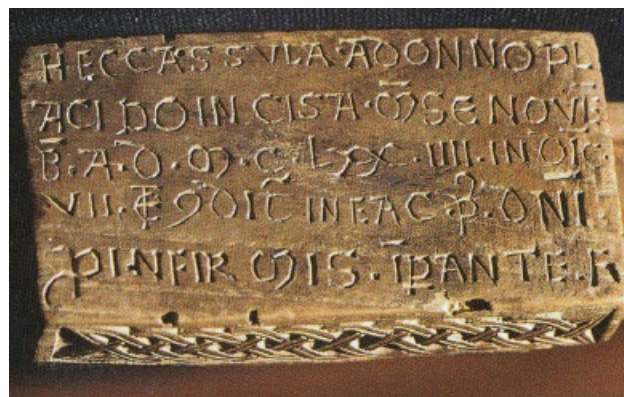 HEC CASSVLA·A DONNO PL
ACIDO INCISA·M̄SE NOVĒ
B̄.A.D.M.C.LXX.IIII.INDIC
VII. 9DIT̄ IN EA C P̄. DNI.
INFIRMIS.